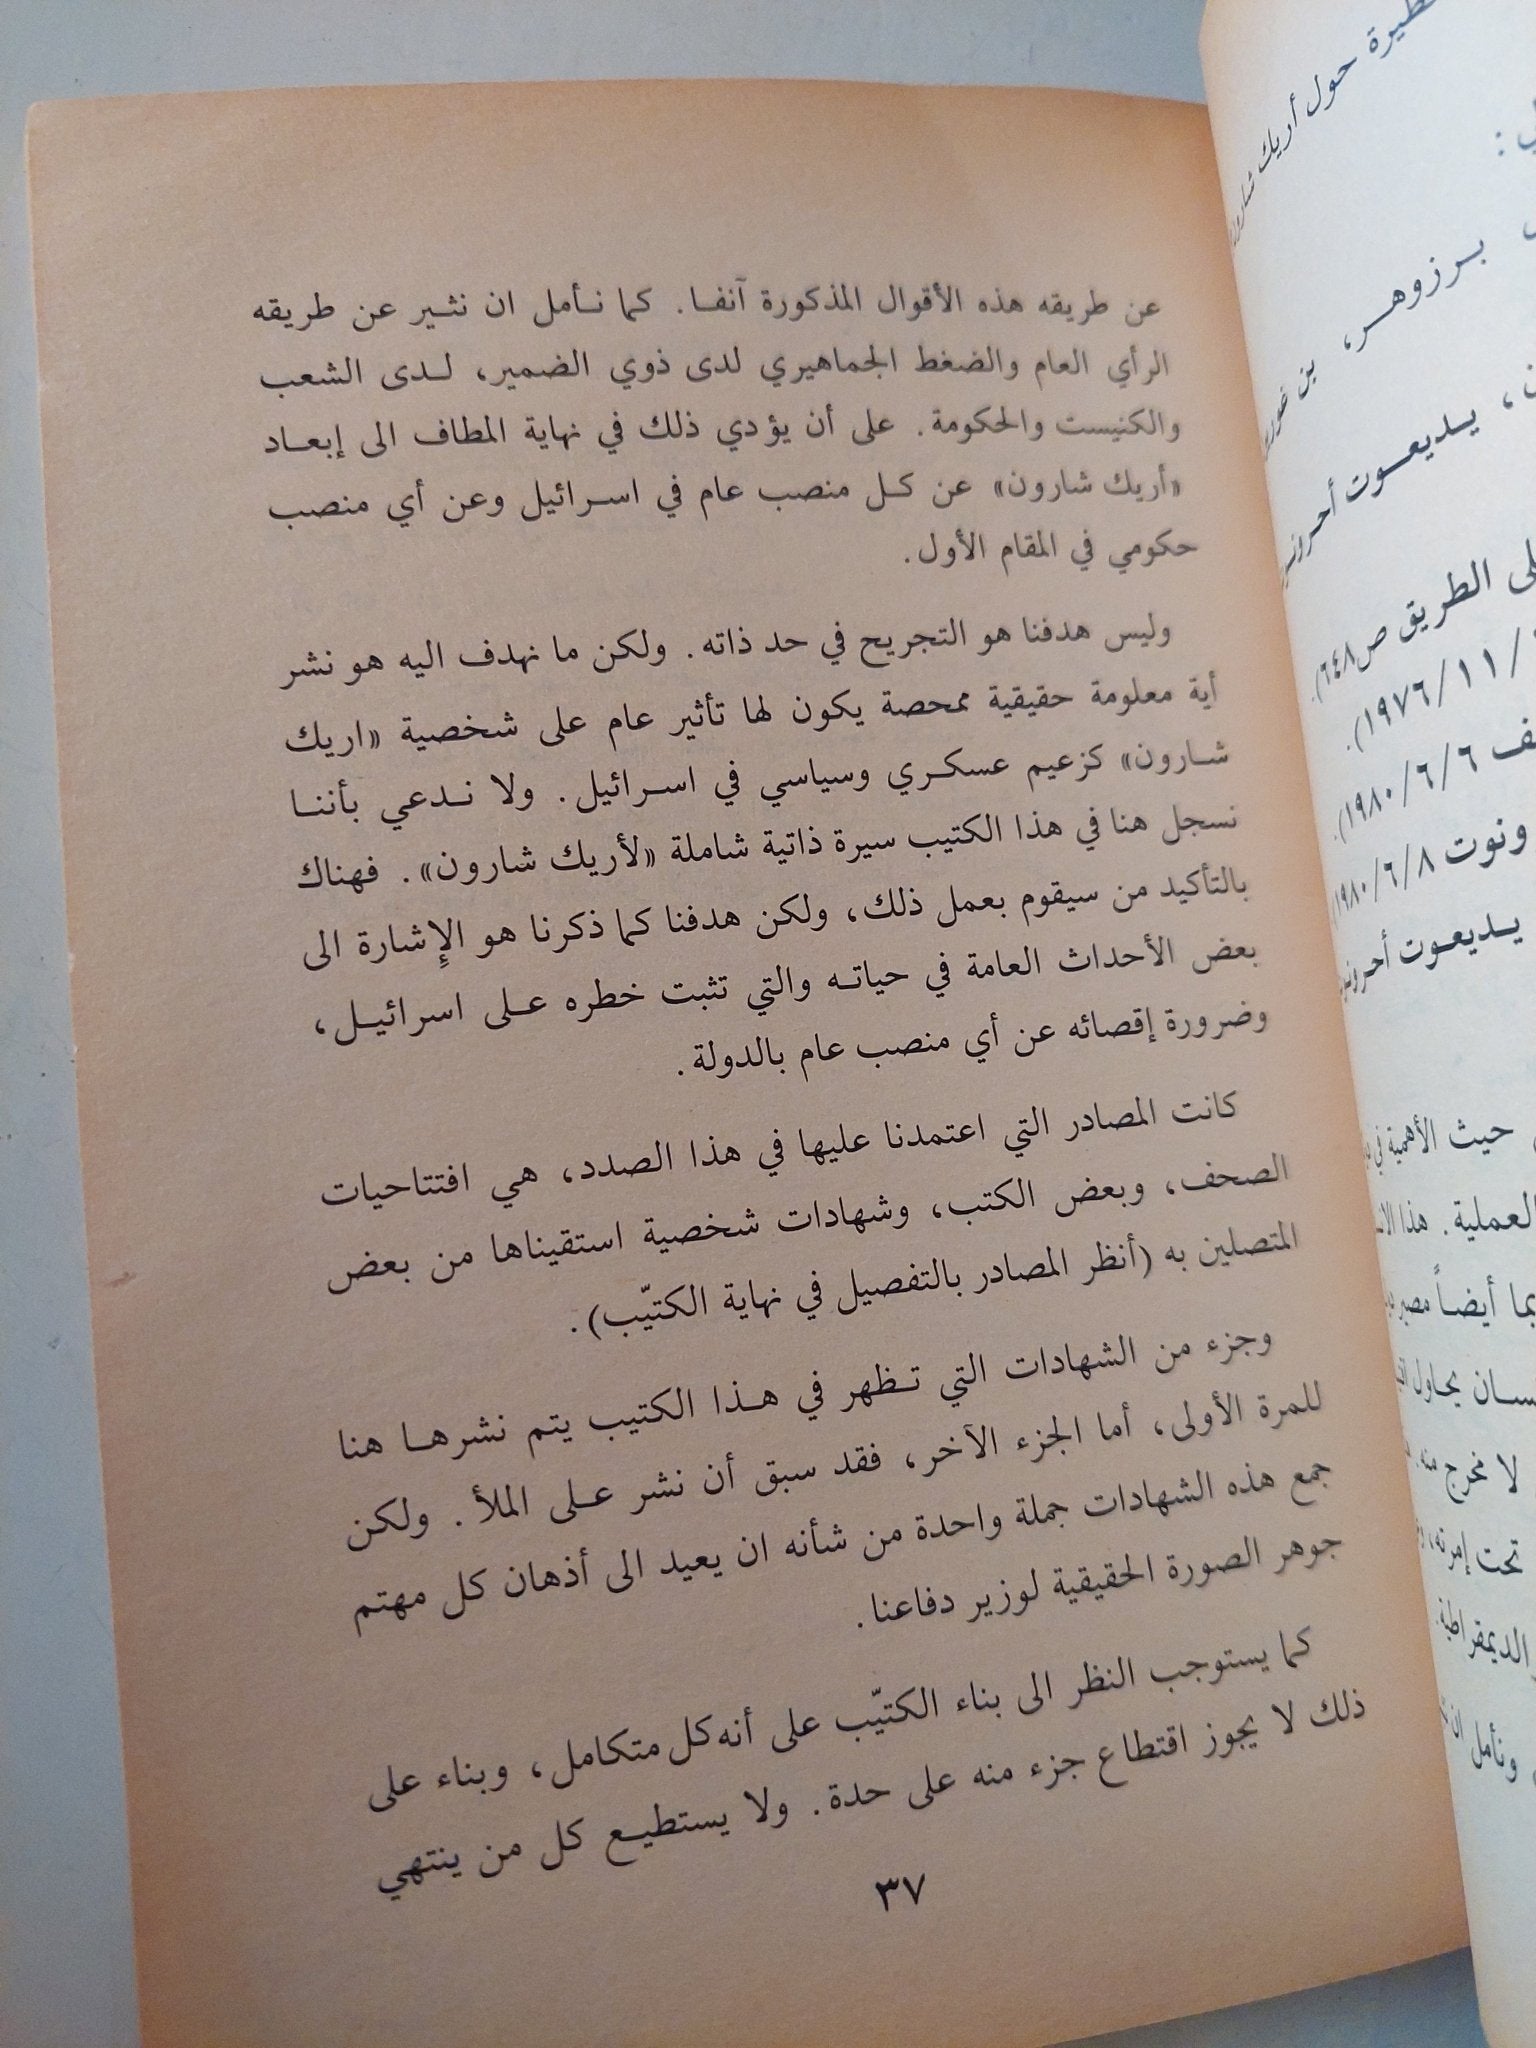 عن طريقه هذه الأقوال المذكورة آنفا. كما نأمل ان نثير عن طريقه
الرأي العام والضغط الجماهيري لدى ذوي الضمير، لدى الشعب
والكنيست والحكومة. على أن يؤدي ذلك في نهاية المطاف الى إبعاد
«أريك شارون» عن كل منصب عام في اسرائيل وعن أي منصب
حكومي في المقام الأول.
وليس هدفنا هو التجريح في حد ذاته. ولكن ما نهدف اليه هو نشر
أية معلومة حقيقية ممحصة يكون لها تأثير عام على شخصية «اريك
شارون» كزعيم عسكري وسياسي في اسرائيل. ولا ندعي بأننا
نسجل هنا في هذا الكتيب سيرة ذاتية شاملة «لأريك شارون». فهناك
بالتأكيد من سيقوم بعمل ذلك، ولكن هدفنا كما ذكرنا هو الإشارة الى
بعض الأحداث العامة في حياته والتي تثبت خطره على اسرائيل،
وضرورة إقصائه عن أي منصب عام بالدولة.
كانت المصادر التي اعتمدنا عليها في هذا الصدد، هي افتتاحيات
الصحف، وبعض الكتب، وشهادات شخصية استقيناها من بعض
المتصلين به (أنظر المصادر بالتفصيل في نهاية الكتيّب).
وجزء من الشهادات التي تظهر في هذا الكتيب يتم نشرها هنا
للمرة الأولى، أما الجزء الآخر، فقد سبق أن نشر على الملأ. ولكن
جمع هذه الشهادات جملة واحدة من شأنه ان يعيد الى أذهان كل مهتم
جوهر الصورة الحقيقية لوزير دفاعنا.
كما يستوجب النظر الى بناء الكتيّب على أنه كل متكامل، وبناء على
ذلك لا يجوز اقتطاع جزء منه على حدة. ولا يستطيع كل من ينتهي
٣٧
حول أريك شارون
برزوهر، بن
يديعوت
الطريق ص٦٤٨).
١٩٧٦/١١/
١٩٨٠/٦/٦).
ونوت ١٩٨٠/٦/٨
يديعوت
حيث الأهمية
العملية. هذا
أيضاً
يحاول
لا مخرج منه.
تحت إمرته،
الديمقراطية.
ونأمل ان